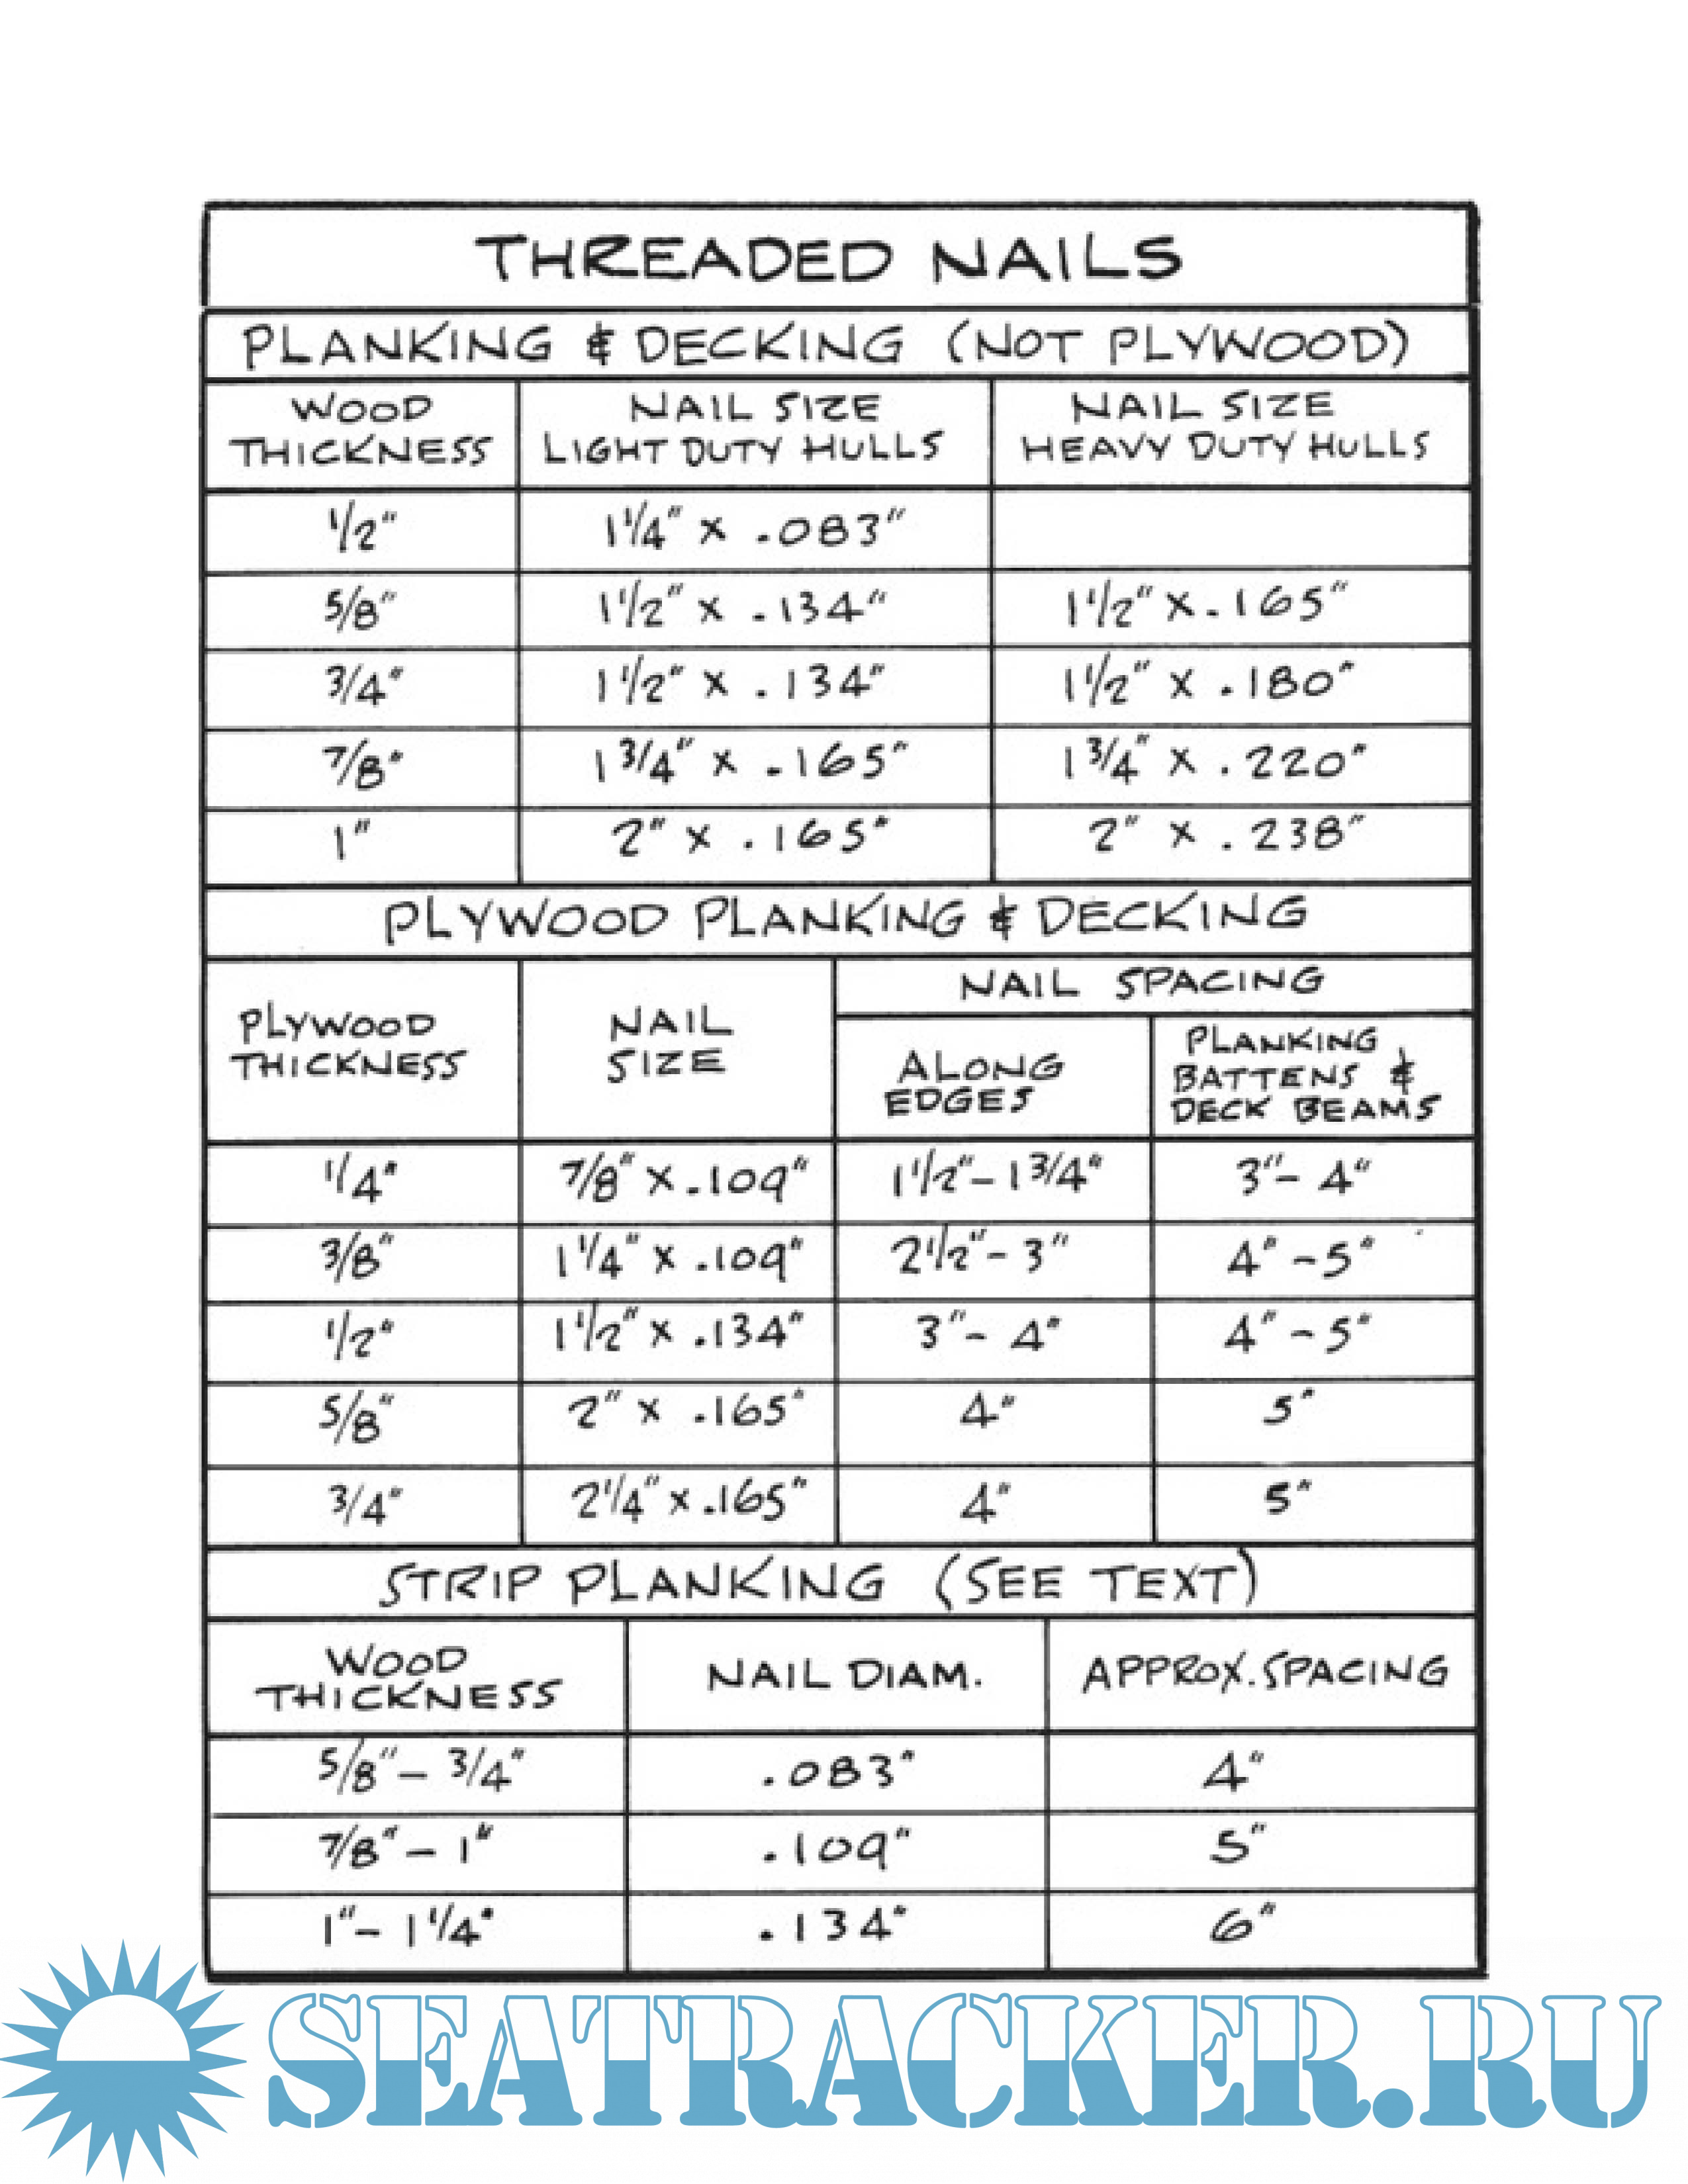 THREADED NAILS
PLANKING & DECKING (NOT PLYWOOD)
WOOD THICKNESS
NAIL SIZE LIGHT DUTY HULLS
NAIL SIZE HEAVY DUTY HULLS
1/2" 1 1/4" x .083"
5/8" 1 1/2" x .134" 1 1/2" x .165"
3/4" 1 1/2" x .134" 1 1/2" x .180"
7/8" 1 3/4" x .165" 1 3/4" x .220"
1" 2" x .165" 2" x .238"
PLYWOOD PLANKING & DECKING
PLYWOOD THICKNESS
NAIL SIZE
NAIL SPACING
ALONG EDGES
PLANKING BATTENS & DECK BEAMS
1/4" 7/8" x .109" 1 1/2" – 1 3/4" 3" – 4"
3/8" 1 1/4" x .109" 2 1/2" – 3" 4" – 5"
1/2" 1 1/2" x .134" 3" – 4" 4" – 5"
5/8" 2" x .165" 4" 5"
3/4" 2 1/4" x .165" 4" 5"
STRIP PLANKING (SEE TEXT)
WOOD THICKNESS
NAIL DIAM.
APPROX. SPACING
5/8" – 3/4" .083" 4"
7/8" – 1" .109" 5"
1" – 1 1/4" .134" 6"
SEATRACKER.RU